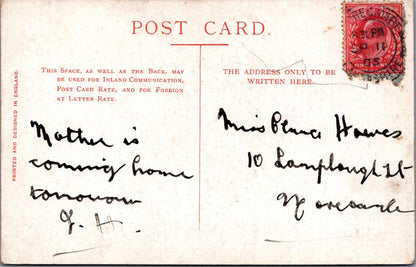 POST CARD.
THIS SPACE, AS WELL AS THE BACK, MAY
BE USED FOR INLAND COMMUNICATION,
POST CARD RATE, AND FOR FOREIGN
AT LETTER RATE.
THE ADDRESS ONLY TO BE
WRITTEN HERE.
PRINTED AND DESIGNED IN ENGLAND.
Mother is
coming home
tomorrow
J. H.
Miss Hawes
10 Lamplough St